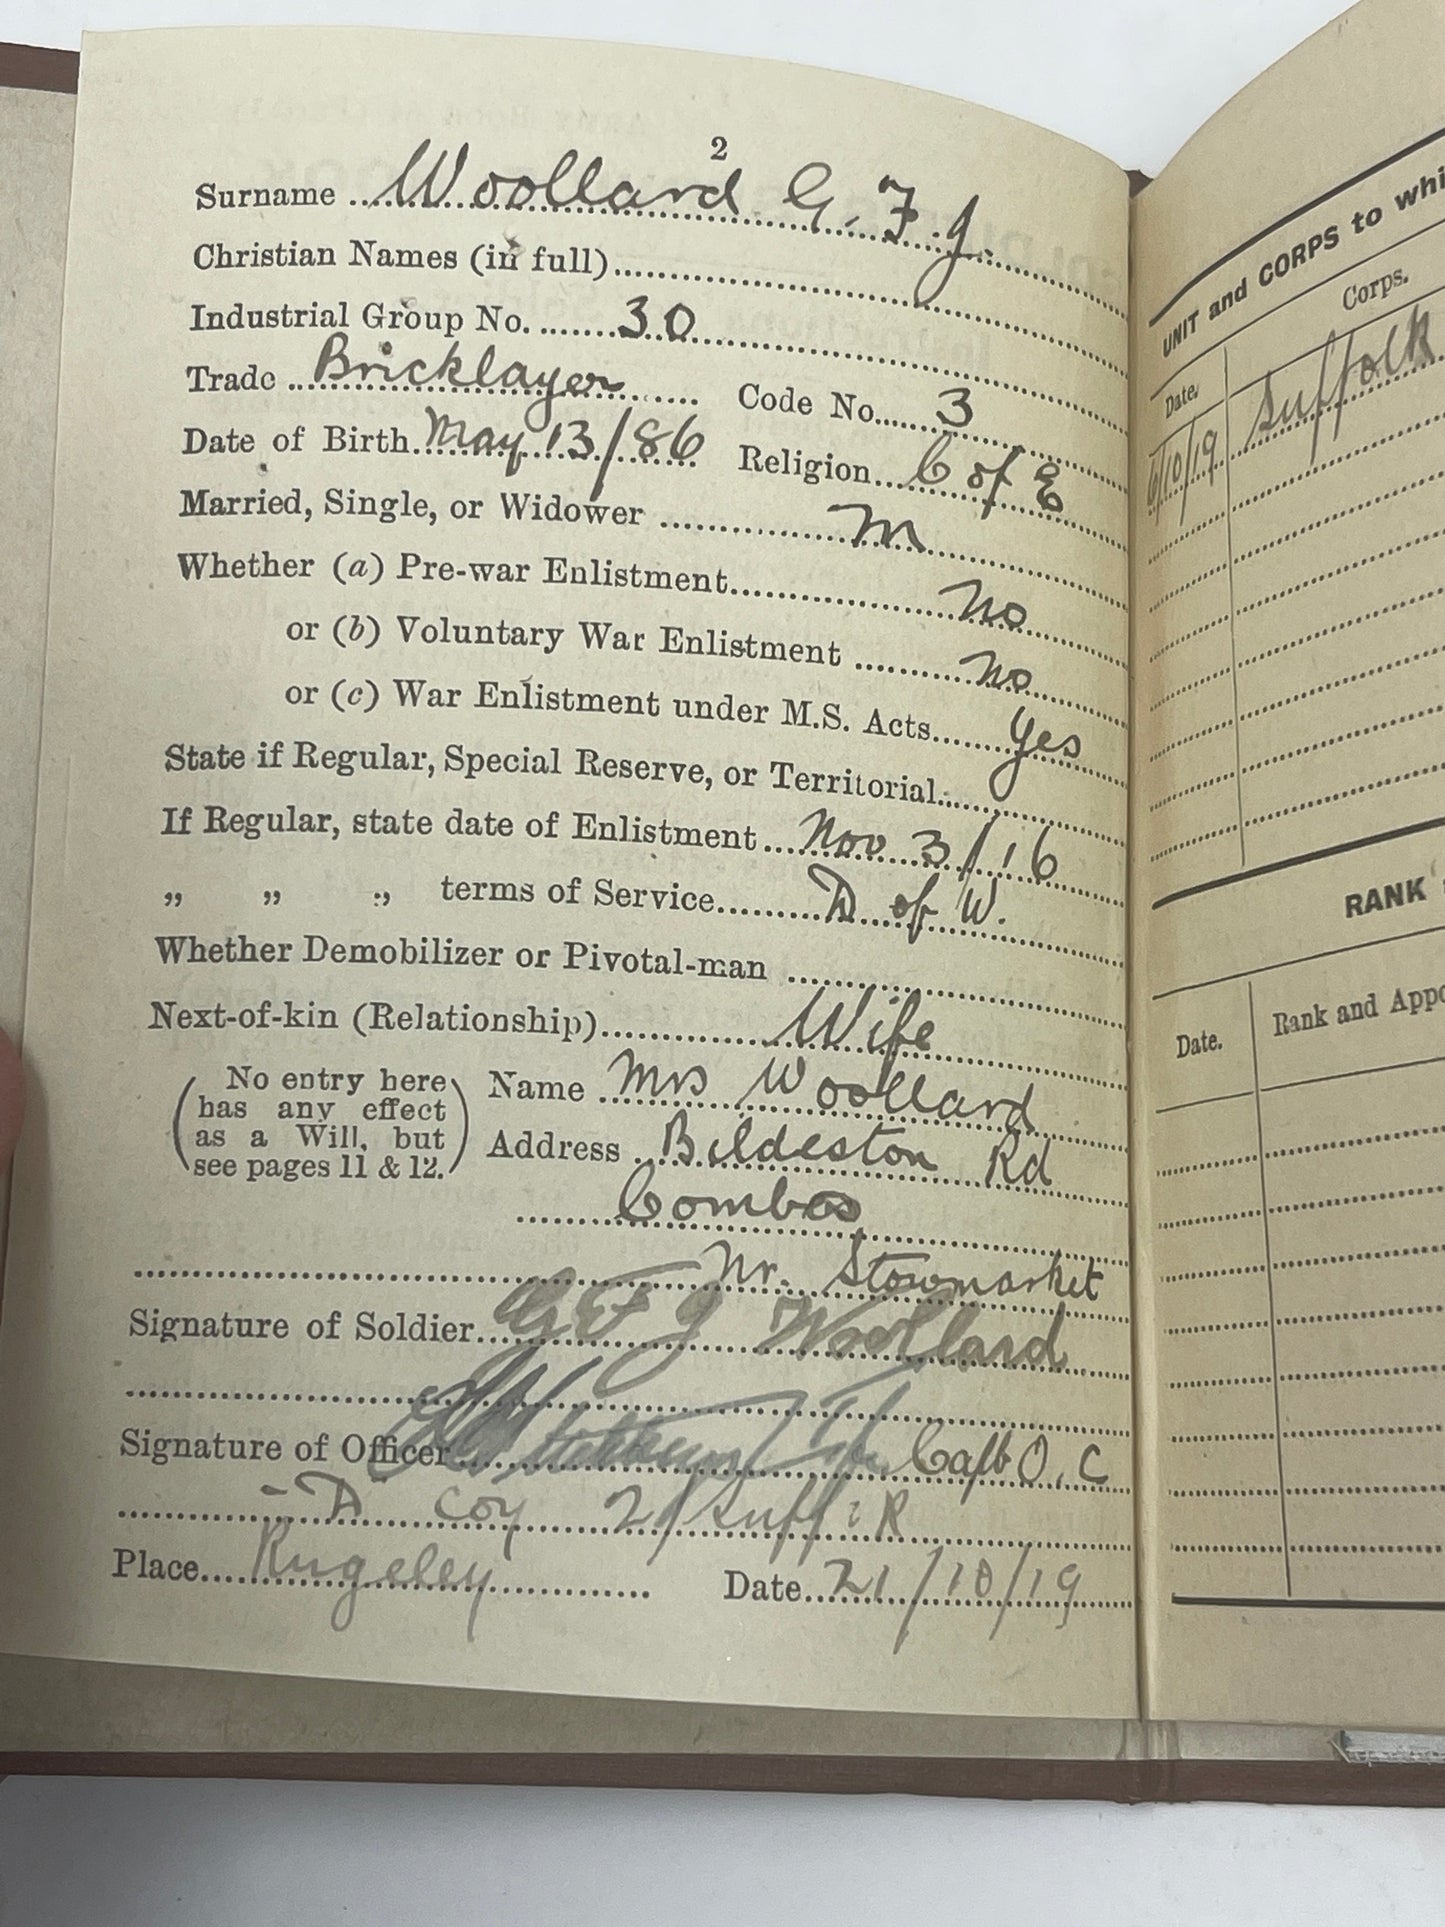 2
Surname Woollard G. F. J.
Christian Names (in full)
Industrial Group No. 30
Trade Bricklayer Code No. 3
Date of Birth May 13/86 Religion C of E
Married, Single, or Widower M
Whether (a) Pre-war Enlistment No
or (b) Voluntary War Enlistment No
or (c) War Enlistment under M.S. Acts Yes
State if Regular, Special Reserve, or Territorial
If Regular, state date of Enlistment Nov 3/16
„ „ „ terms of Service D of W.
Whether Demobilizer or Pivotal-man
Next-of-kin (Relationship) Wife
(No entry here has any effect as a Will, but see pages 11 & 12.)
Name Mrs Woollard
Address Bildeston Rd
Combs
Nr. Stowmarket
Signature of Soldier G F J Woollard
Signature of Officer Capt O. C
D Coy 2/Suff: R
Place Rugeley Date 21/10/19
UNIT and CORPS to whi
Date. Corps.
6/10/19 Suffolk
RANK
Date. Rank and Appo